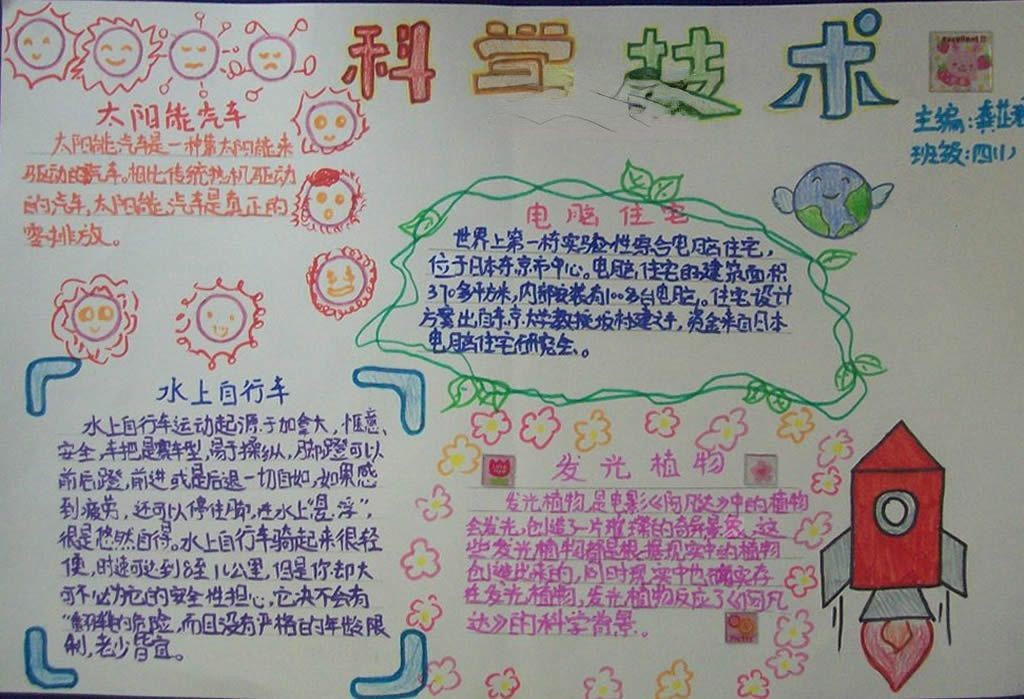 科学技术
excellent!!
主编:龚芷
班级:四(1)
太阳能汽车
太阳能汽车是一种靠太阳能来
驱动的汽车。相比传统热机驱动
的汽车,太阳能汽车是真正的
零排放。
电脑住宅
世界上第一栋实验性综合电脑住宅,
位于日本东京市中心。电脑住宅的建筑面积
370多平方米,内部安装有100多台电脑。住宅设计
方案出自东京大学教授坂村建之手,资金来自日本
电脑住宅研究会。
水上自行车
水上自行车运动起源于加拿大,惬意、
安全,车把是赛车型,易于操纵,脚蹬可以
前后蹬,前进或是后退一切自如,如果感
到疲劳,还可以停住脚,在水上"悬浮",
很是悠然自得。水上自行车骑起来很轻
便,时速可达到8至12公里,但是你却大
可不必为它的安全性担心,它决不会有
的危险,而且没有严格的年龄限
制,老少皆宜。
发光植物
发光植物是电影《阿凡达》中的植物
会发光,创造了一片璀璨的奇异景象,这
些发光植物都是根据现实中的植物
创造出来的,同时现实中也确实存
在发光植物,发光植物反应了《阿凡
达》的科学背景。